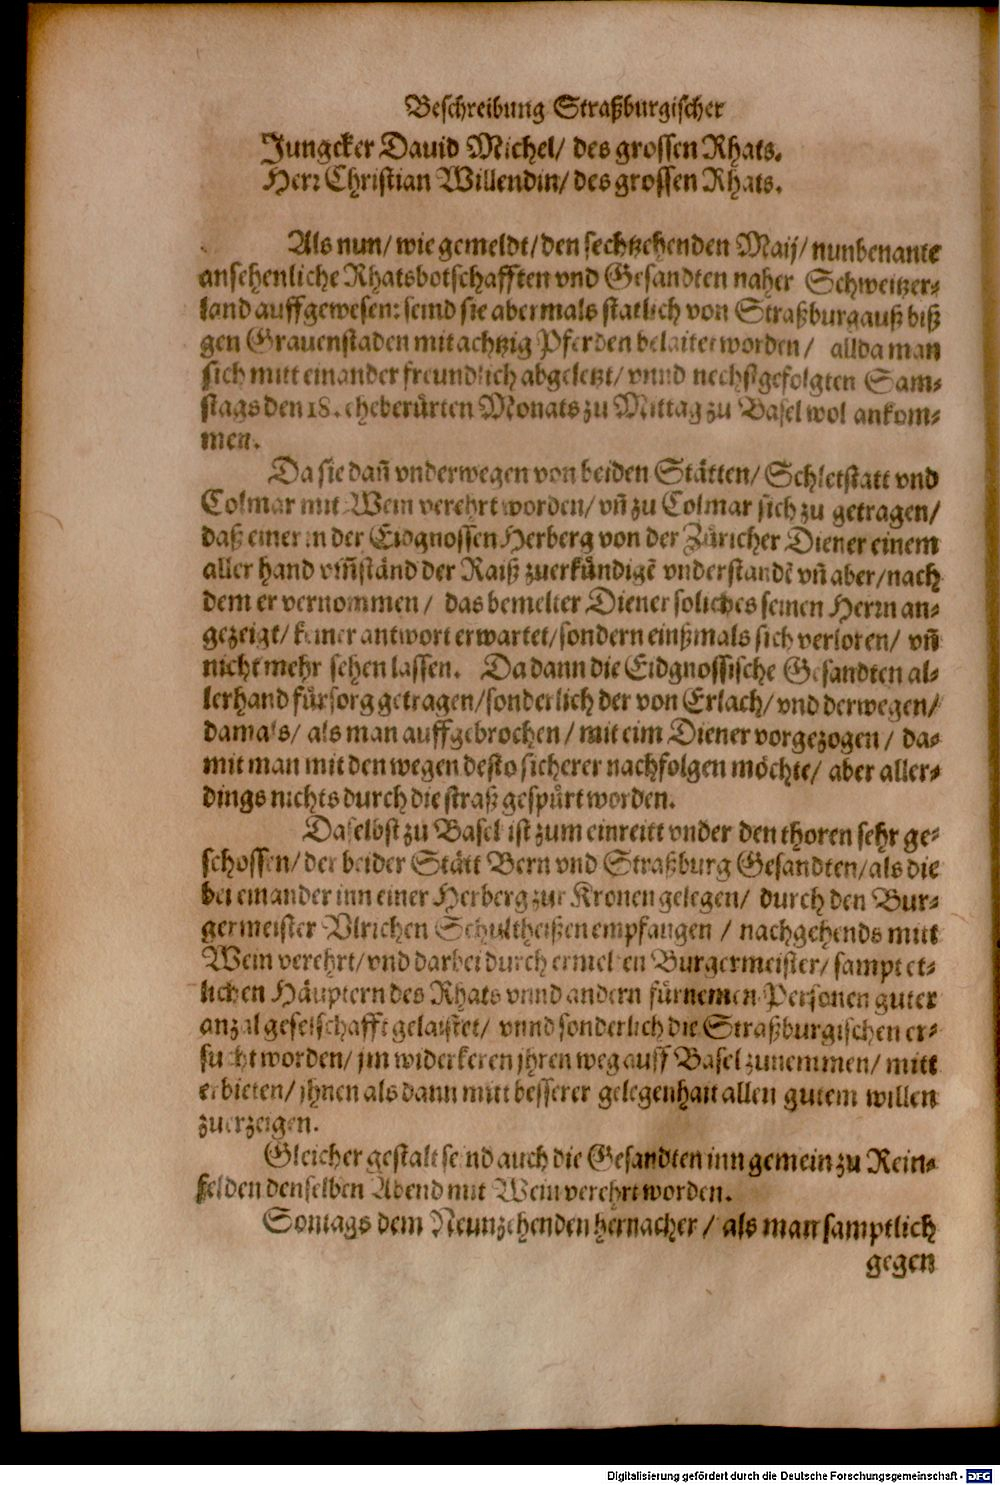 Beschreibung Straßburgischer
Jungcker Dauid Michel/ des grossen Rhats.
Herr Christian Willendin/ des grossen Rhats.
Als nun/ wie gemeldt/ den sechtzehenden Maij/ nunbenante
ansehenliche Rhatsbotschafften vnd Gesandten naher Schweitzer-
land auffgewesen: seind sie abermals statlich von Straßburg auß biß
gen Grauenstaden mit achtzig Pferden belaitet worden/ allda man
sich mitt einander freundlich abgeletzt/ vnnd nechstgefolgten Sam-
stags den 18. eheberürten Monats zu Mittag zu Basel wol ankom-
men.
Da sie dañ vnderwegen von beiden Stätten/ Schletstatt vnd
Colmar mit Wein verehrt worden/ vñ zu Colmar sich zu getragen/
daß einer in der Eidgnossen Herberg von der Züricher Diener einem
aller hand vm̃ständ der Raiß zuerkündigẽ vnderstandẽ vñ aber/ nach
dem er vernommen/ das bemelter Diener soliches seinen Herrn an-
gezeigt/ keiner antwort erwartet/ sondern einßmals sich verloren/ vñ
nicht mehr sehen lassen. Da dann die Eidgnossische Gesandten al-
lerhand fürsorg getragen/ sonderlich der von Erlach/ vnd derwegen/
damals/ als man auffgebrochen/ mit eim Diener vorgezogen/ da-
mit man mit den wegen desto sicherer nachfolgen möchte/ aber aller-
dings nichts durch die straß gespürt worden.
Daselbst zu Basel ist zum einreitt vnder den thoren sehr ge-
schossen/ der beider Stätt Bern vnd Straßburg Gesandten/ als die
bei einander inn einer Herberg zur Kronen gelegen/ durch den Bur-
germeister Vlrichen Schultheißen empfangen/ nachgehends mitt
Wein verehrt/ vnd darbei durch ermelten Burgermeister/ sampt et-
lichen Häuptern des Rhats vnnd andern fürnemen Personen guter
anzal geselschafft gelaistet/ vnnd sonderlich die Straßburgischen er-
sucht worden/ jm widerkeren jhren weg auff Basel zunemmen/ mitt
erbieten/ jhnen als dann mitt besserer gelegenhait allen gutem willen
zuerzeigen.
Gleicher gestalt seind auch die Gesandten inn gemein zu Rein-
felden denselben Abend mit Wein verehrt worden.
Sontags dem Neunzehenden hernacher/ als man samptlich
gegen
Digitalisierung gefördert durch die Deutsche Forschungsgemeinschaft - DFG